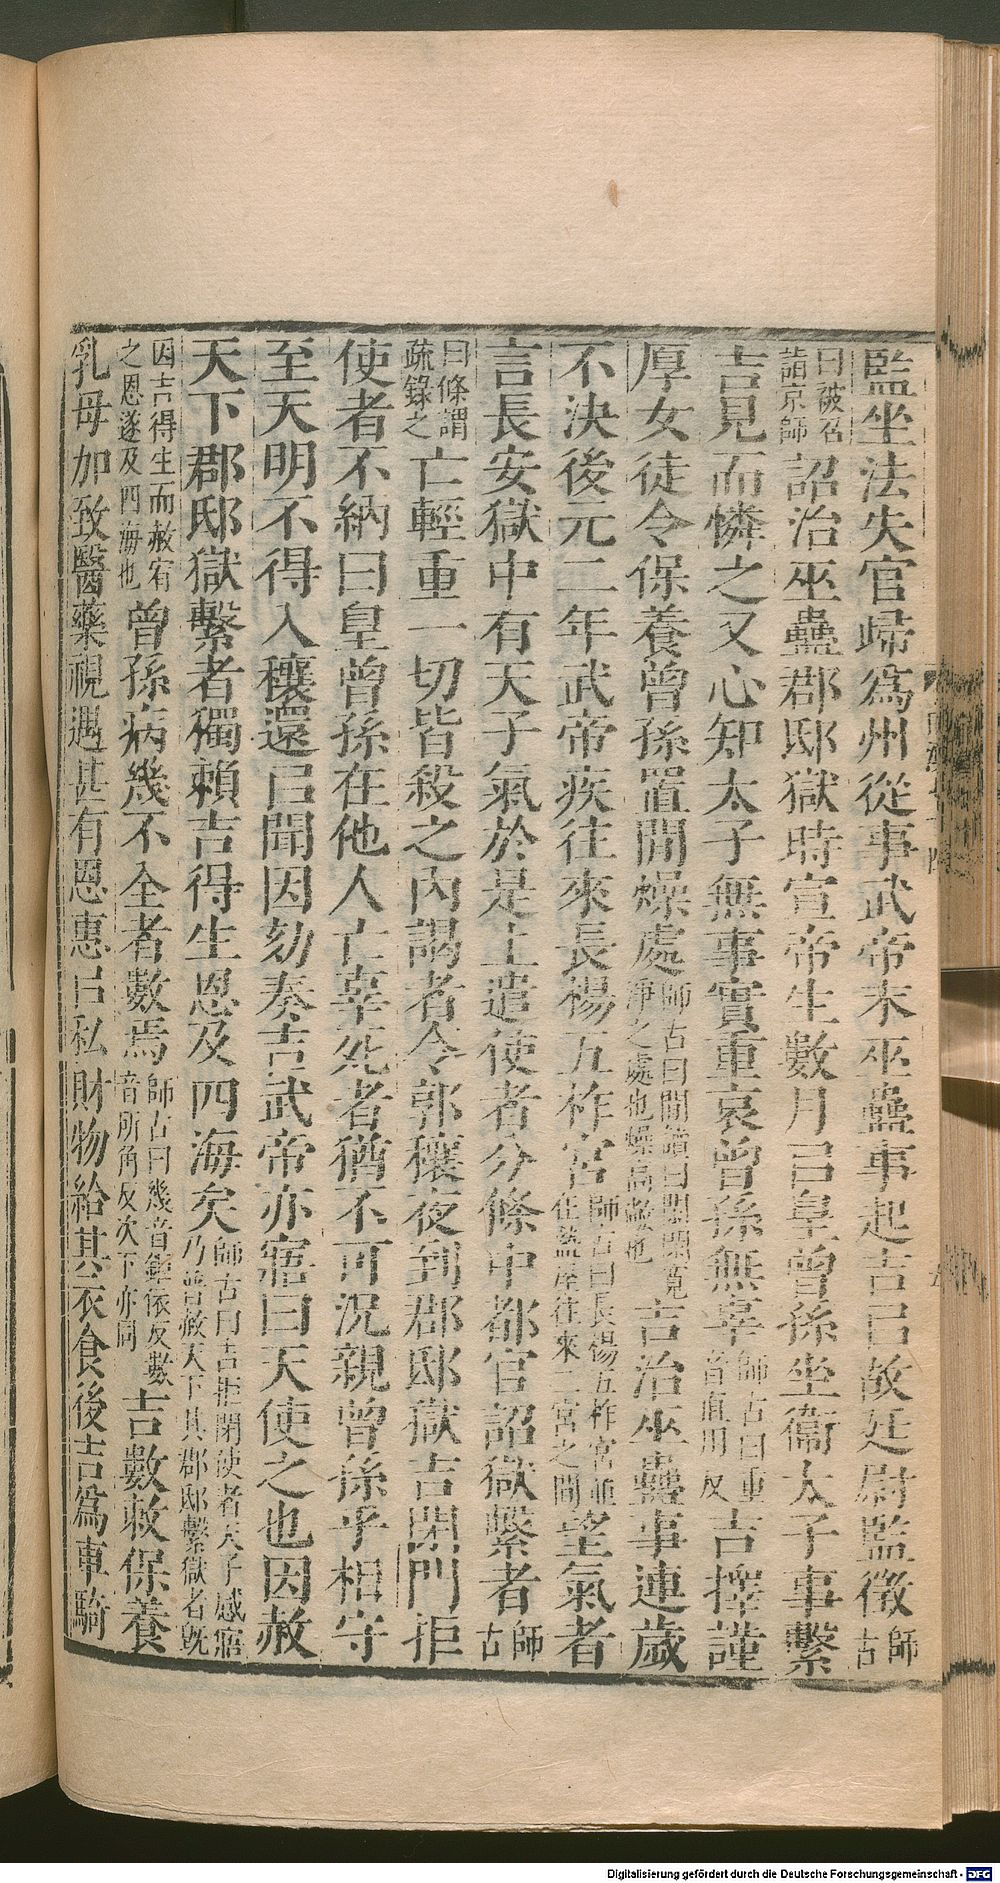 監坐法失官歸爲州從事武帝末巫蠱事起吉㠯故廷尉監徵師古
曰被召詣京師詔治巫蠱郡邸獄時宣帝生數月㠯皇曾孫坐衞太子事繫
吉見而憐之又心知太子無事實重哀曾孫無辜師古曰重音直用反吉擇謹
厚女徒令保養曾孫置閒燥處師古曰閒讀曰閑閑寬淨之處也燥高敞也吉治巫蠱事連歲
不決後元二年武帝疾往來長楊五柞宮師古曰長楊五柞宮並在盩厔往來二宮之間望氣者
言長安獄中有天子氣於是上遣使者分條中都官詔獄繫者師古
曰條謂疏錄之亡輕重一切皆殺之內謁者令郭穰夜到郡邸獄吉閉門拒
使者不納曰皇曾孫在他人亡辜死者猶不可況親曾孫乎相守
至天明不得入穰還㠯聞因劾奏吉武帝亦寤曰天使之也因赦
天下郡邸獄繫者獨賴吉得生恩及四海矣師古曰吉拒閉使者天子感寤乃普赦天下其郡邸繫獄者旣
因吉得生而赦宥之恩遂及四海也曾孫病幾不全者數焉師古曰幾音鉅依反數音所角反次下亦同吉數敕保養
乳母加致醫藥視遇甚有恩惠㠯私財物給其衣食後吉爲車騎
Digitalisierung gefördert durch die Deutsche Forschungsgemeinschaft - DFG